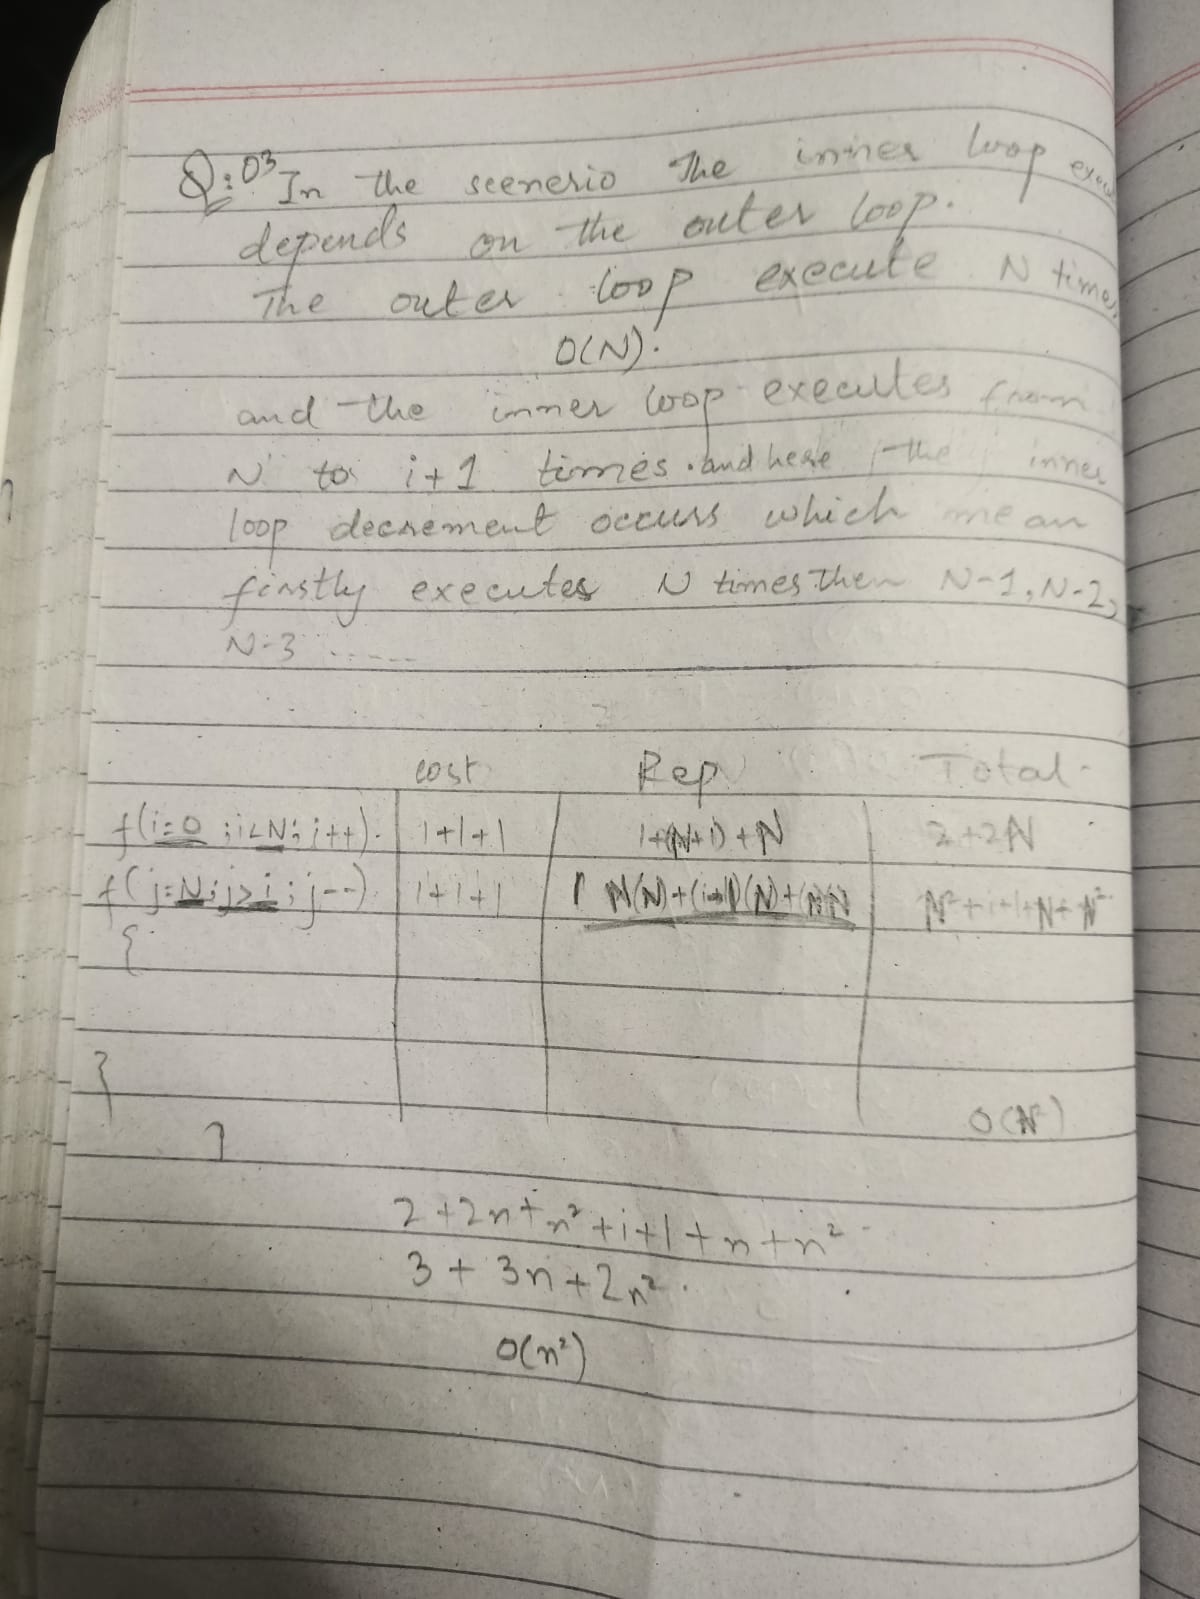 Q:03 In the scenerio The inner loop
depends on the outer loop.
The outer loop execute N times
O(N).
and the inner loop executes from
N to i+1 times. and here the inner
loop decrement occurs which mean
firstly executes N times Then N-1, N-2,
N-3 .....
cost Rep Total
f(i=0 ; i<N; i++). 1+1+1 1+(N+1)+N 2+2N
f(j=N; j>i; j--) 1+1+1 N(N)+(i+1)(N)+ N²+i+1+N+N²
{
}
O(N²)
2+2n+n²+i+1+n+n²
3+3n+2n².
O(n²)